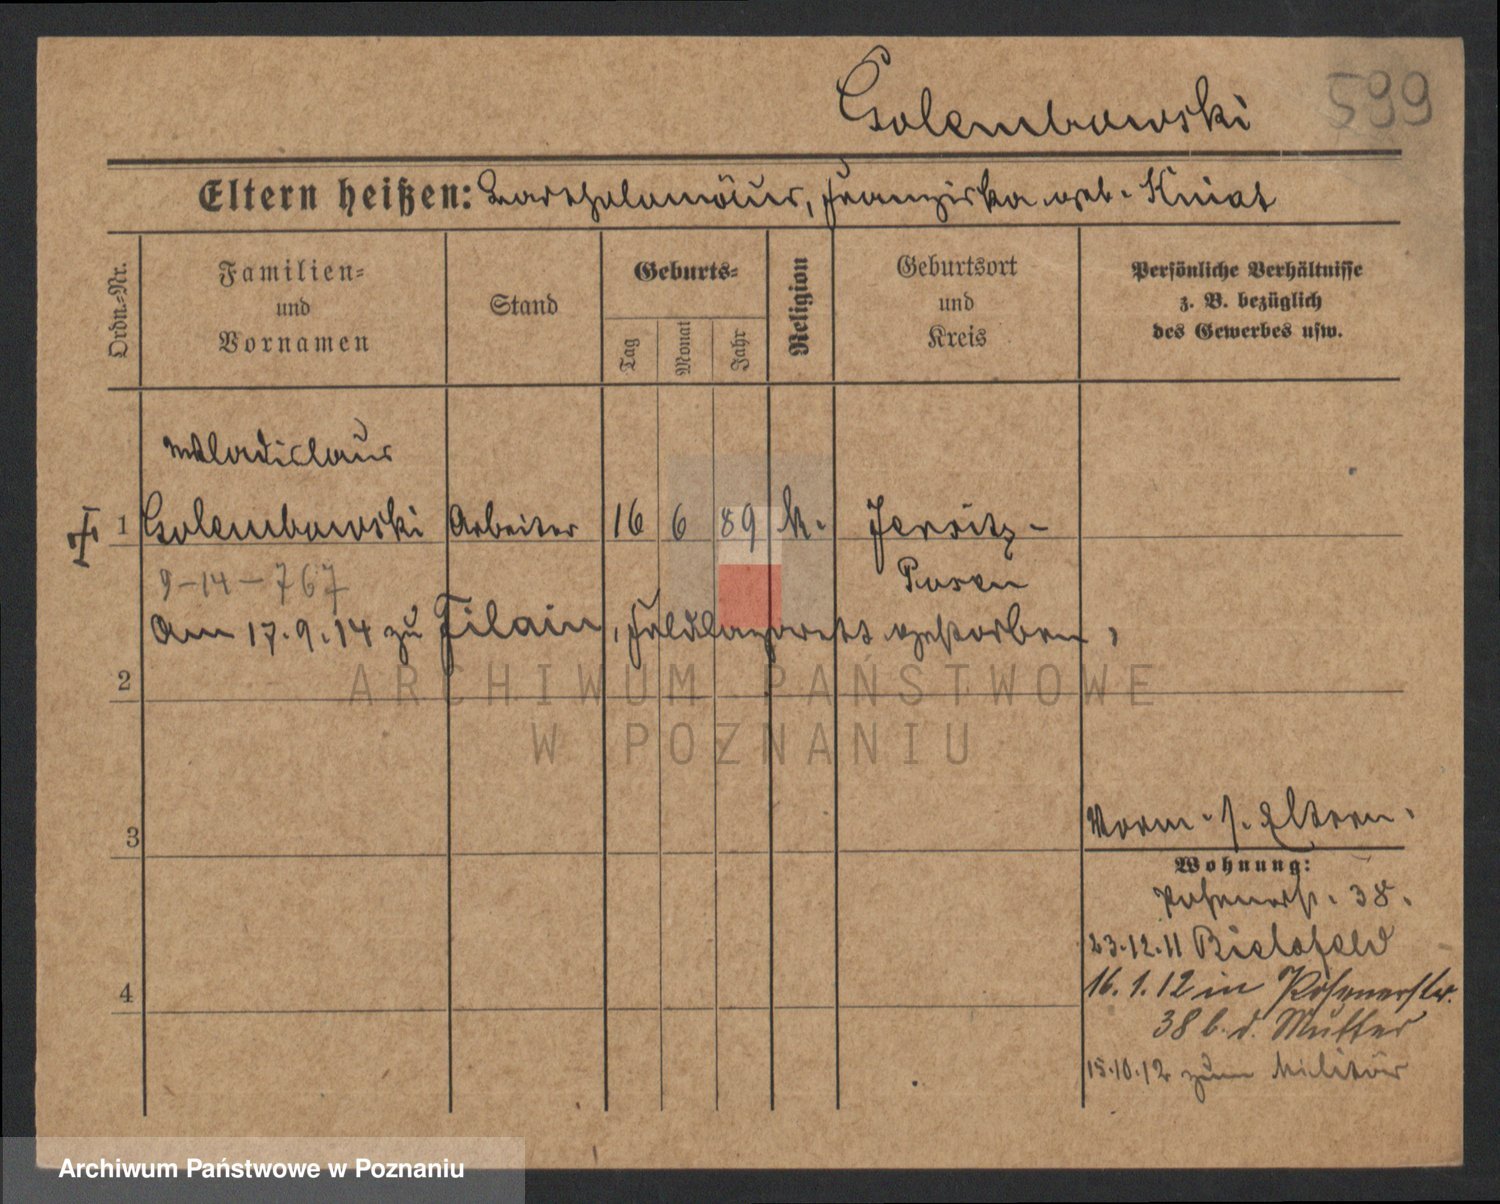 Golembowski 599
Eltern heißen: Bartholomäus, Franziska geb. Kniat
Ordn.-Nr.
Familien-
und
Vornamen
Stand
Geburts-
Tag
Monat
Jahr
Religion
Geburtsort
und
Kreis
Persönliche Verhältnisse
z. B. bezüglich
des Gewerbes usw.
Wladislaus
1 Golembowski Arbeiter 16 6 89 k. Jersitz-
9-14-767 Posen
Am 17.9.14 zu Filain, Feldlazarett gestorben,
2
ARCHIWUM PAŃSTWOWE
W POZNANIU
3
Vorm. s. Eltern.
Wohnung:
Posenerst. 38.
23.12.11 Bielefeld
4
16.1.12 in Posenerstr.
38 b. d. Mutter
15.10.12 zum Militär
Archiwum Państwowe w Poznaniu